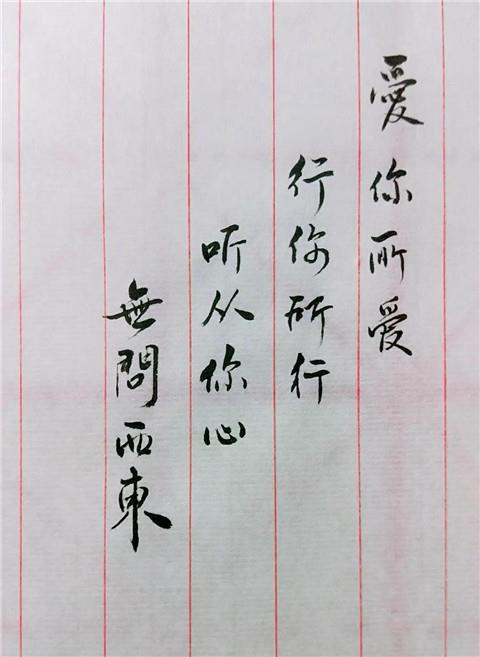 愛你所愛
行你所行
听从你心
無問西東